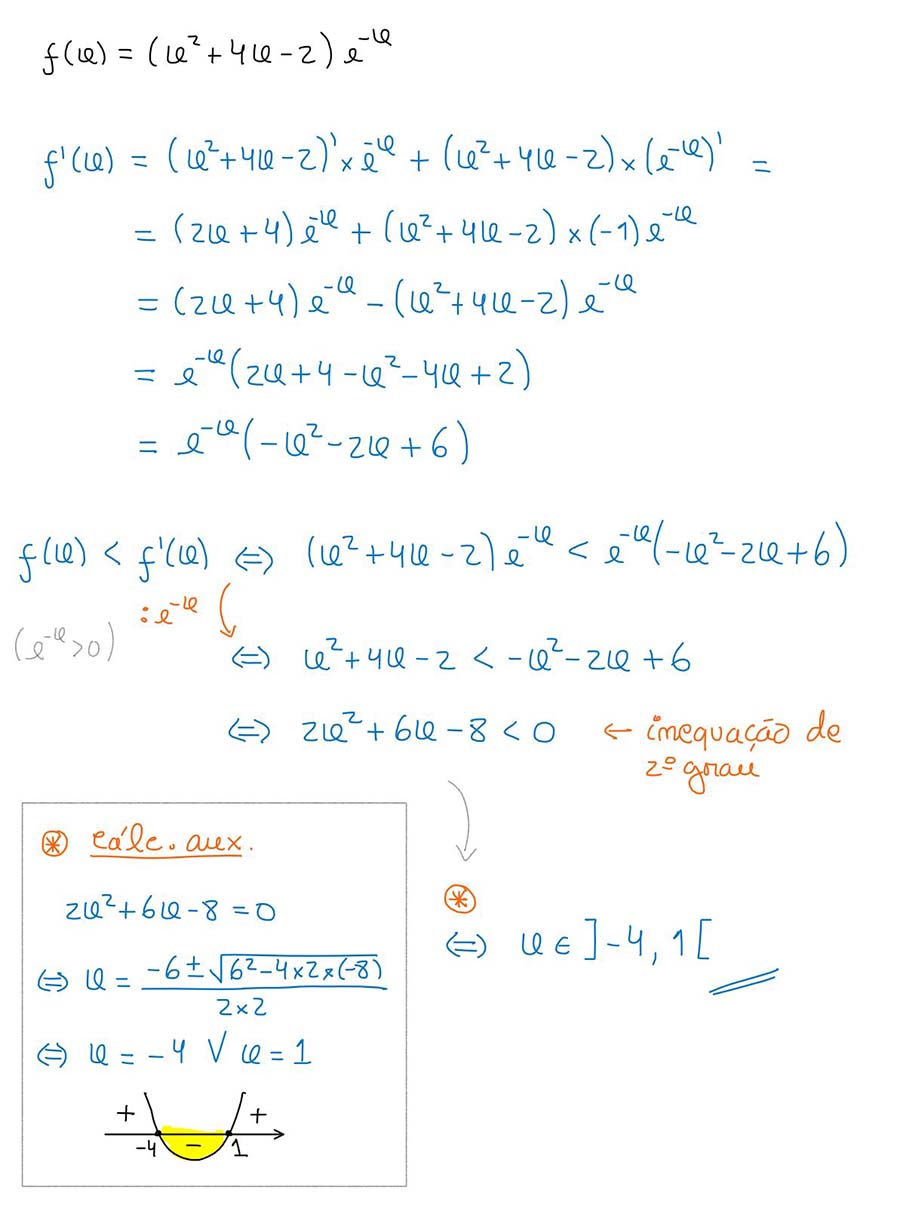 f(x) = (x²+4x-2) e⁻ˣ
f'(x) = (x²+4x-2)' × e⁻ˣ + (x²+4x-2) × (e⁻ˣ)' =
= (2x+4) e⁻ˣ + (x²+4x-2) × (-1) e⁻ˣ
= (2x+4) e⁻ˣ - (x²+4x-2) e⁻ˣ
= e⁻ˣ (2x+4-x²-4x+2)
= e⁻ˣ (-x²-2x+6)
f(x) < f'(x) ⇔ (x²+4x-2) e⁻ˣ < e⁻ˣ (-x²-2x+6)
: e⁻ˣ
(e⁻ˣ>0)
⇔ x²+4x-2 < -x²-2x+6
⇔ 2x²+6x-8 < 0 ← inequação de
2º grau
⊛ cálc. aux.
2x²+6x-8 = 0
⇔ x = (-6 ± √(6²-4×2×(-8))) / (2×2)
⇔ x = -4 ∨ x = 1
+ +
-4 - 1
⊛
⇔ x ∈ ]-4, 1[